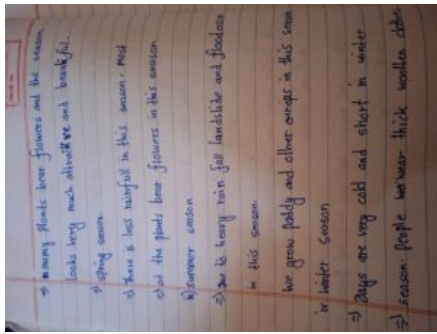 ⇒ many plants bear flowers and the season
looks very much attractive and beautiful.
⇒ spring season
⇒ there is less rainfall in this season. most
of the plants bear flowers in this season
b) summer season
⇒ Due to heavy rain fall landslide and
in this season.
we grow paddy and other crops in this season
winter season
⇒ Days are very cold and short in winter
⇒ season. people wear thick woollen